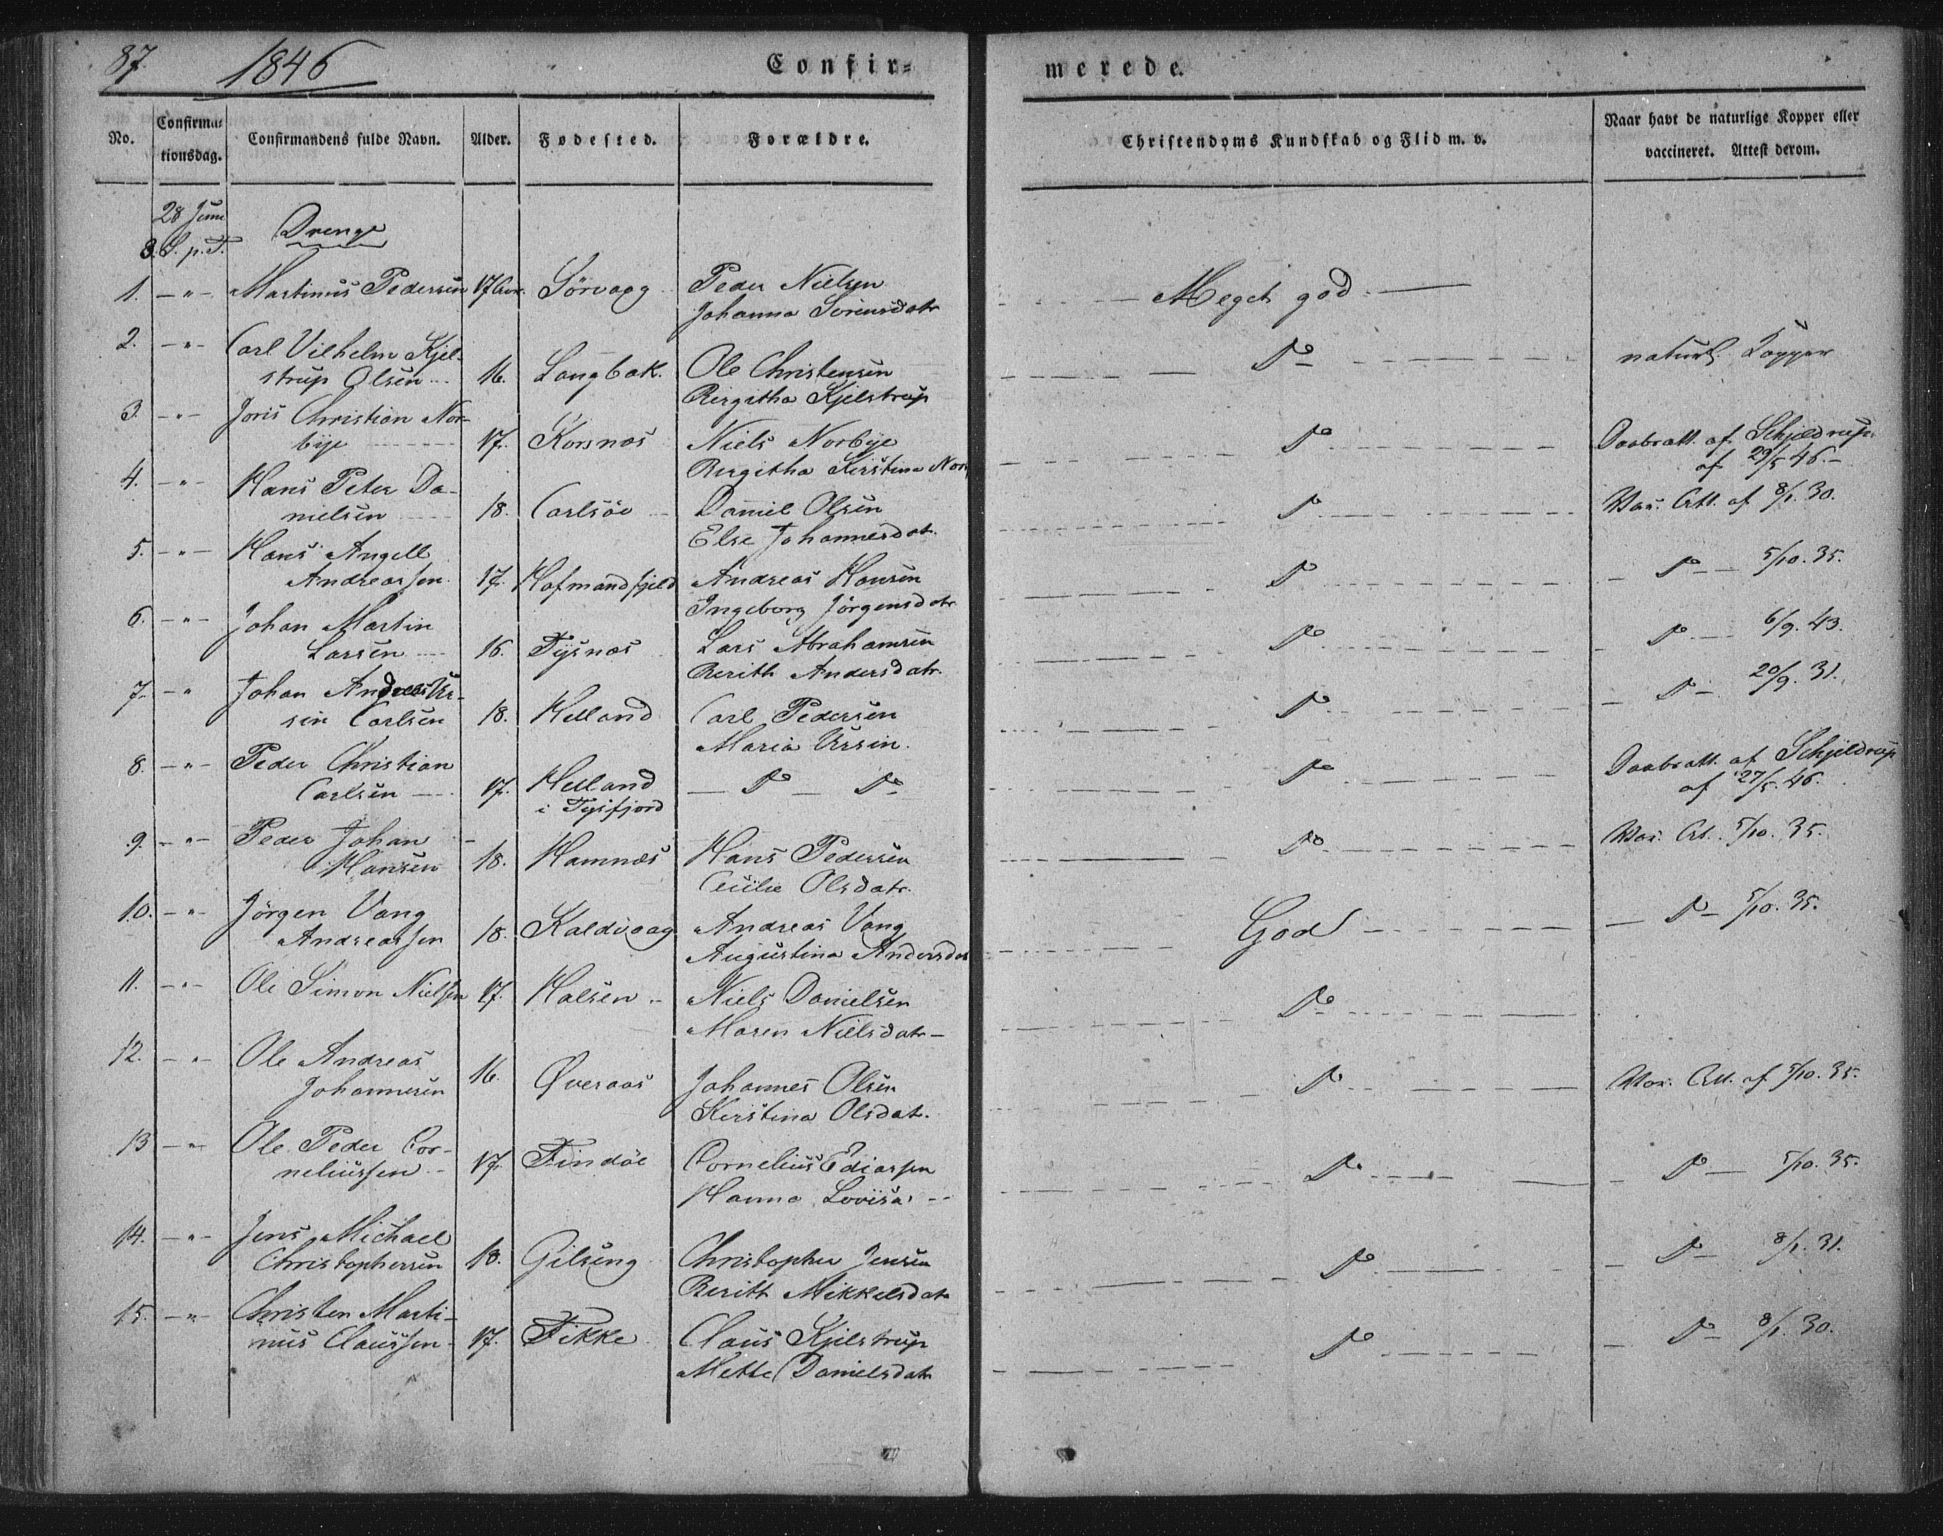 87. 1846 Confir= merede.
No. Confirmationsdag. Confirmandens fulde Navn. Alder. Fødested. Forældre. Christendoms Kundskab og Flid m. v. Naar havt de naturlige Kopper eller vaccineret. Attest derom.
28 Juni
3. S. p. T. Drenge
1. — " — Martinus Pedersen 17 Sørvaag Peder Nielsen Meget god
Johanna Sørensdatr
2. — " — Carl Vilhelm Kjel- naturl. Kopper
strup Olsen 16. Langbak. Ole Christensen Do
Birgitha Kjelstrup
3. — " — Joris Christian Nor- Daabsatt. af Schjeldrup
bye 17. Korsnæs Niels Norbye Do af 29/5 46.
Birgitha Kirstina
4. — " — Hans Peter Da- Vac. Att. af 8/1. 30.
nielsen 18. Carlsöe Daniel Olsen Do
Else Johannesdat.
5. — " — Hans Angell Do 5/10. 35.
Andreassen 17. Hofmandfjeld Andreas Hansen Do
Ingeborg Jörgensdatr
6. — " — Johan Martin Do 6/9. 43.
Larsen 16. Tysnæs Lars Abrahamsen Do
Berith Andersdatr.
7. — " Johan Andreas Ur- Do 20/9. 31.
sin Carlsen 18. Helland Carl Pedersen Do
Maria Ursin.
8. — " — Peder Christian Daabsatt. af Schjeldrup
Carlsen 17. Helland Do Do Do af 27/5. 46.
i Tysfjord
9. — " — Peder Johan Vac. At. 5/10. 35.
Hansen 18. Hamnæs Hans Pedersen Do
Cecilie Olsdatr.
10. — " — Jörgen Vang Do 5/10. 35.
Andreassen 18. Kaldvaag Andreas Vang God
Augustina Andersdat
11. — " — Ole Simon Nielsen 17. Halsen Niels Danielsen Do
Maren Nielsdatr
12. — " — Ole Andreas
Johannesen 16. Øveraas Johannes Olsen Do Vac. Att. af 5/10. 35.
Kirstina Olsdat.
13 — " — Ole Peder Cor-
neliussen 17. Findöe Cornelius Ediassen Do Do 5/10. 35.
Hanna Lovisa
14. — " — Jens Michael Do 8/1. 31.
Christophersen 18. Gilseng Christopher Jensen Do
Berith Mikkelsdat
15. — " — Christen Marti- Do 8/1. 30.
nus Claussen 17. Fikke Claus Kjelstrup Do
Mette Danielsdatr